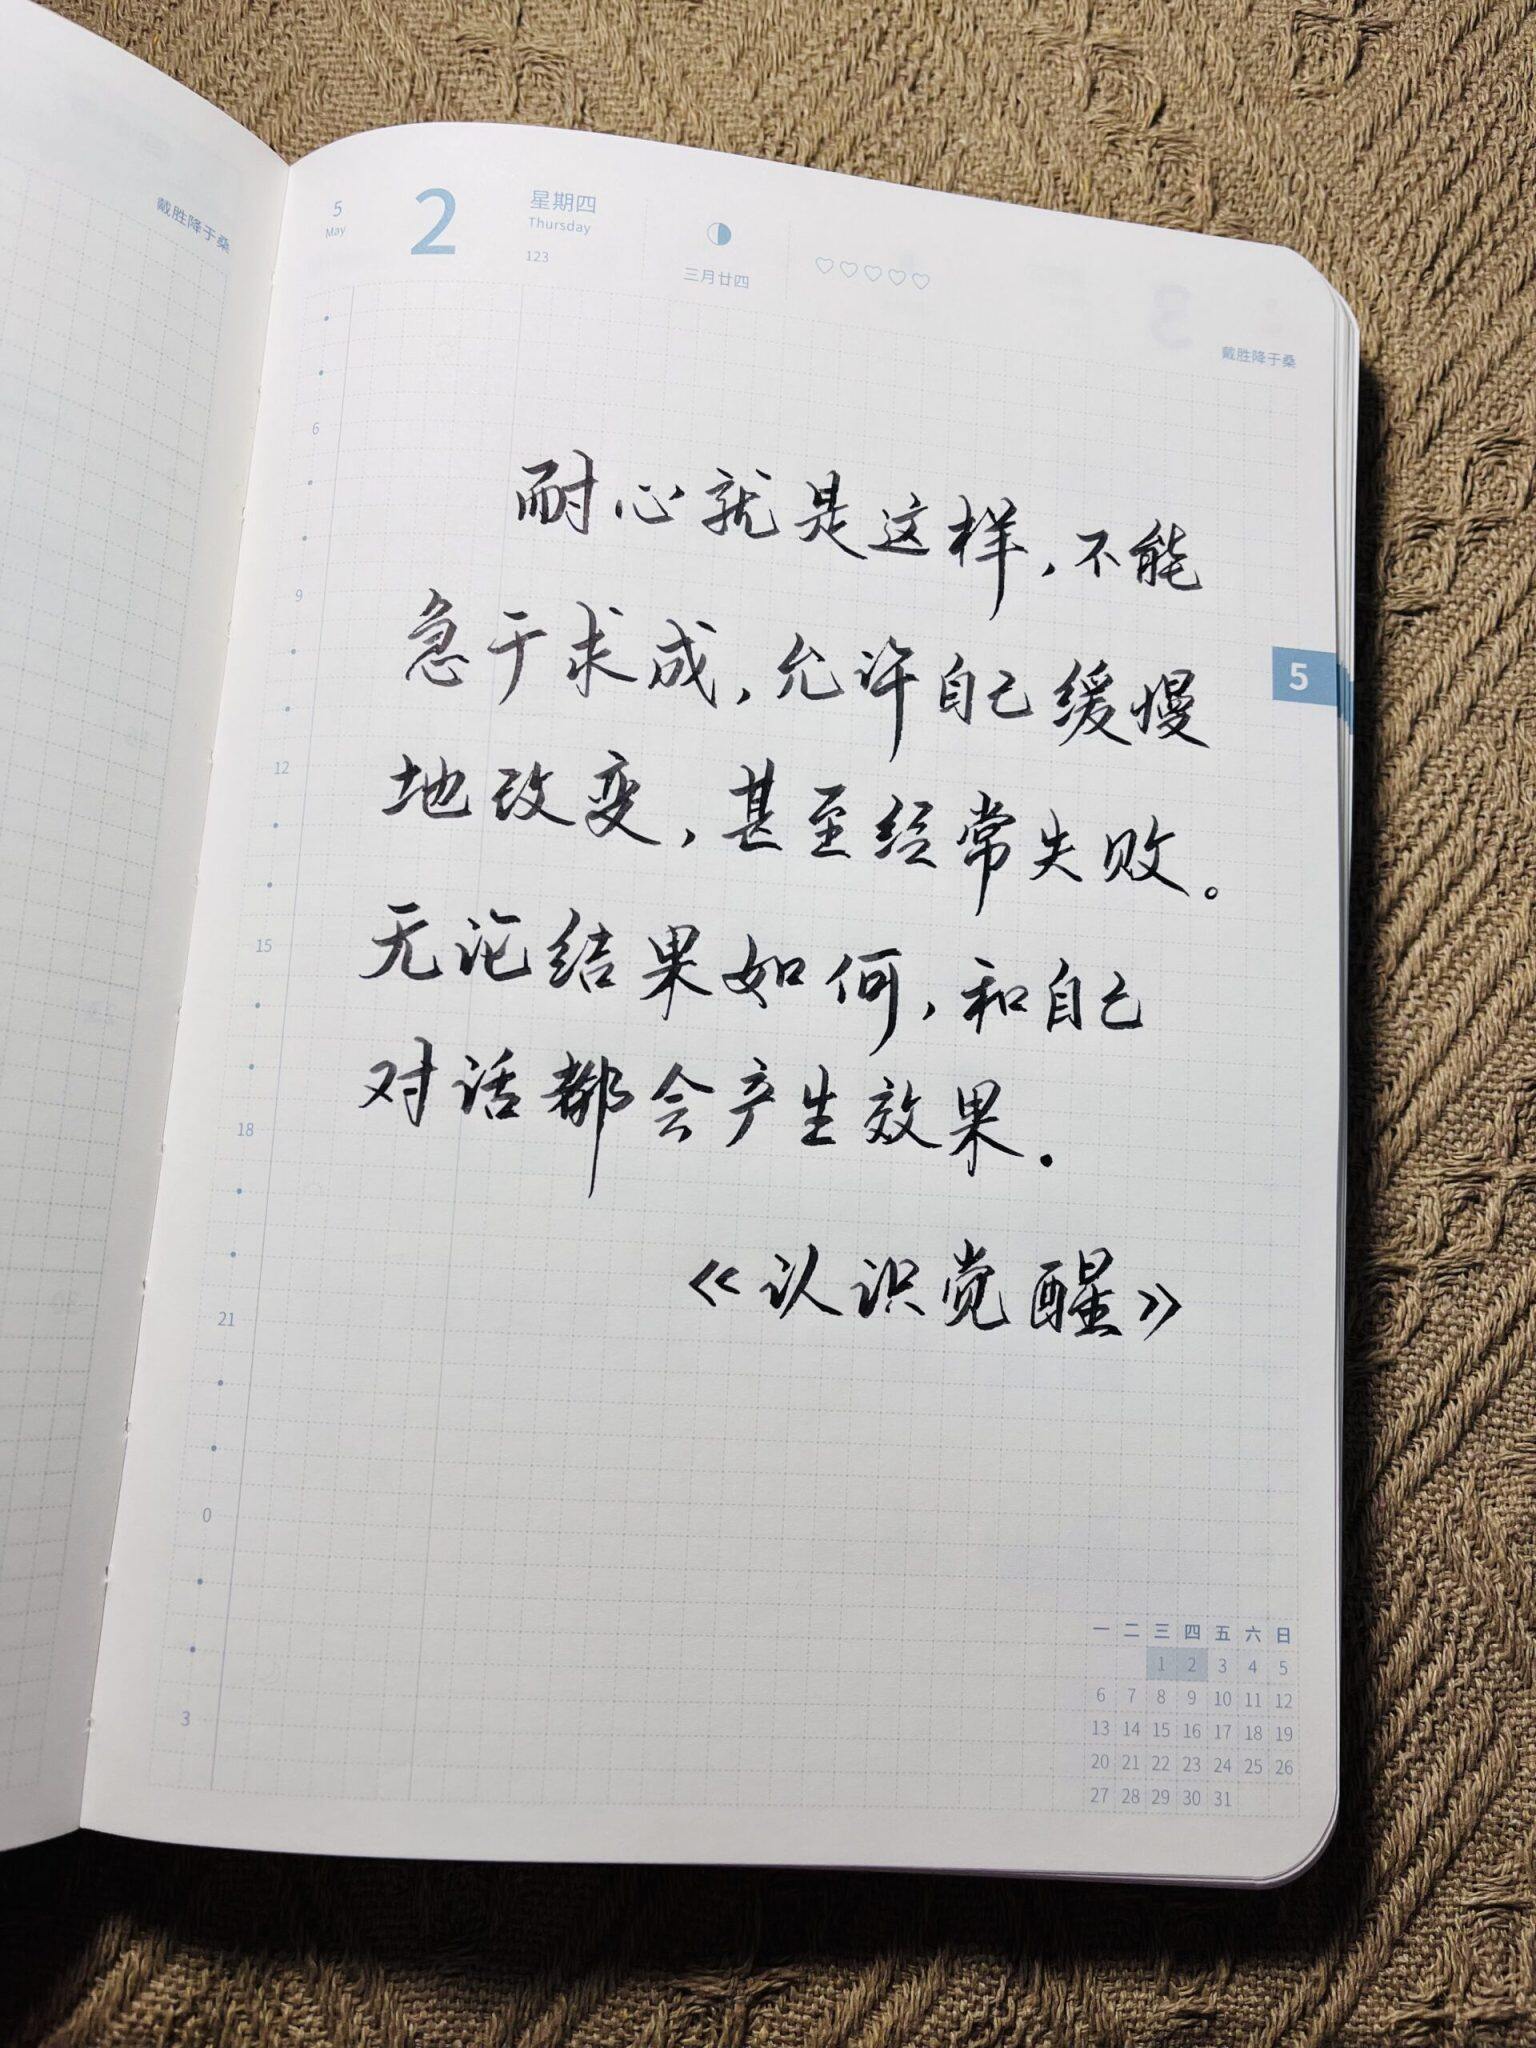 戴胜降于桑
5
May
2
星期四
Thursday
123
三月廿四
戴胜降于桑
6
9
12
15
18
21
0
3
5
耐心就是这样,不能
急于求成,允许自己缓慢
地改变,甚至经常失败。
无论结果如何,和自己
对话都会产生效果.
《认识觉醒》
一 二 三 四 五 六 日
1 2 3 4 5
6 7 8 9 10 11 12
13 14 15 16 17 18 19
20 21 22 23 24 25 26
27 28 29 30 31